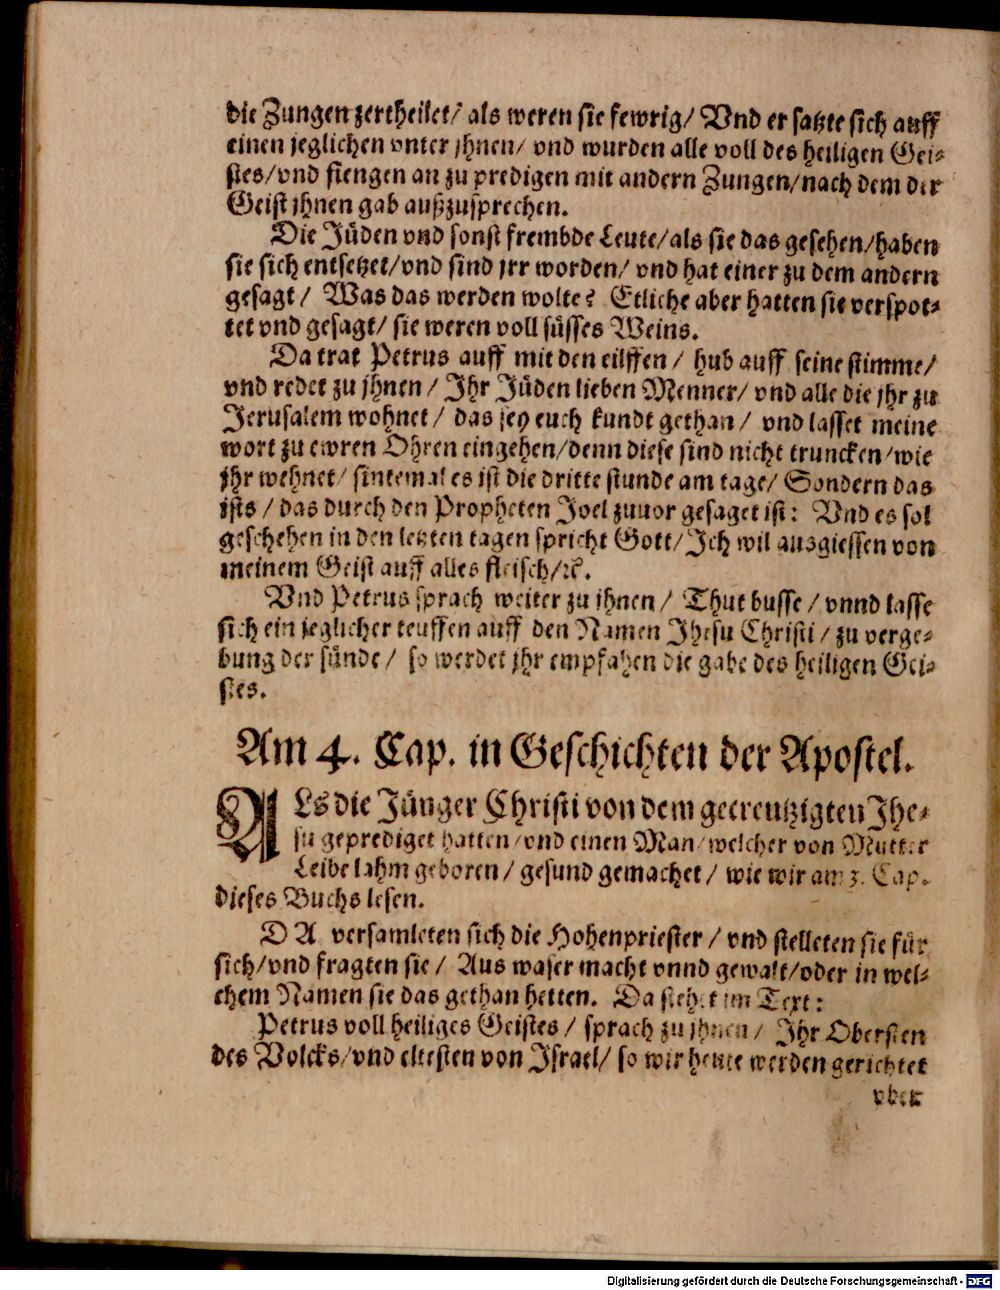 die Zungen zertheilet/ als weren sie fewrig/ Vnd er satzte sich auff
einen jeglichen vnter jhnen/ vnd wurden alle voll des heiligen Gei-
stes/vnd fiengen an zu predigen mit andern Zungen/nach dem der
Geist jhnen gab außzusprechen.
Die Jüden vnd sonst frembde Leute/als sie das gesehen/haben
sie sich entsetzet/vnd sind jrr worden/ vnd hat einer zu dem andern
gesagt/ Was das werden wolte? Etliche aber hatten sie verspot-
tet vnd gesagt/ sie weren voll süsses Weins.
Da trat Petrus auff mit den eilffen/ hub auff seine stimme/
vnd redet zu jhnen/ Jhr Jüden lieben Menner/ vnd alle die jhr zu
Jerusalem wohnet/ das sey euch kundt gethan/ vnd lasset meine
wort zu ewren Ohren eingehen/denn diese sind nicht truncken/wie
jhr wehnet/ sintemal es ist die dritte stunde am tage/ Sondern das
ists/ das durch den Propheten Joel zuuor gesaget ist: Vnd es sol
geschehen in den letzten tagen spricht Gott/Jch wil ausgiessen von
meinem Geist auff alles fleisch/ꝛc.
Vnd Petrus sprach weiter zu jhnen/ Thut busse/ vnnd lasse
sich ein jeglicher teuffen auff den Namen Jhesu Christi/ zu verge-
bung der sünde/ so werdet jhr empfahen die gabe des heiligen Gei-
stes.
Am 4. Cap. in Geschichten der Apostel.
ALs die Jünger Christi von dem gecreutzigten Jhe-
su geprediget hatten/vnd einen Man/welcher von Mutter
Leibe lahm geboren/ gesund gemachet/ wie wir am 3. Cap.
dieses Buchs lesen.
DA versamleten sich die Hohenpriester/ vnd stelleten sie für
sich/vnd fragten sie/ Aus waser macht vnnd gewalt/oder in wel-
chem Namen sie das gethan hetten. Da stehet im Text:
Petrus voll heiliges Geistes/ sprach zu jhnen/ Jhr Obersten
des Volcks/vnd eltesten von Israel/ so wir heute werden gerichtet
vber
Digitalisierung gefördert durch die Deutsche Forschungsgemeinschaft - DFG